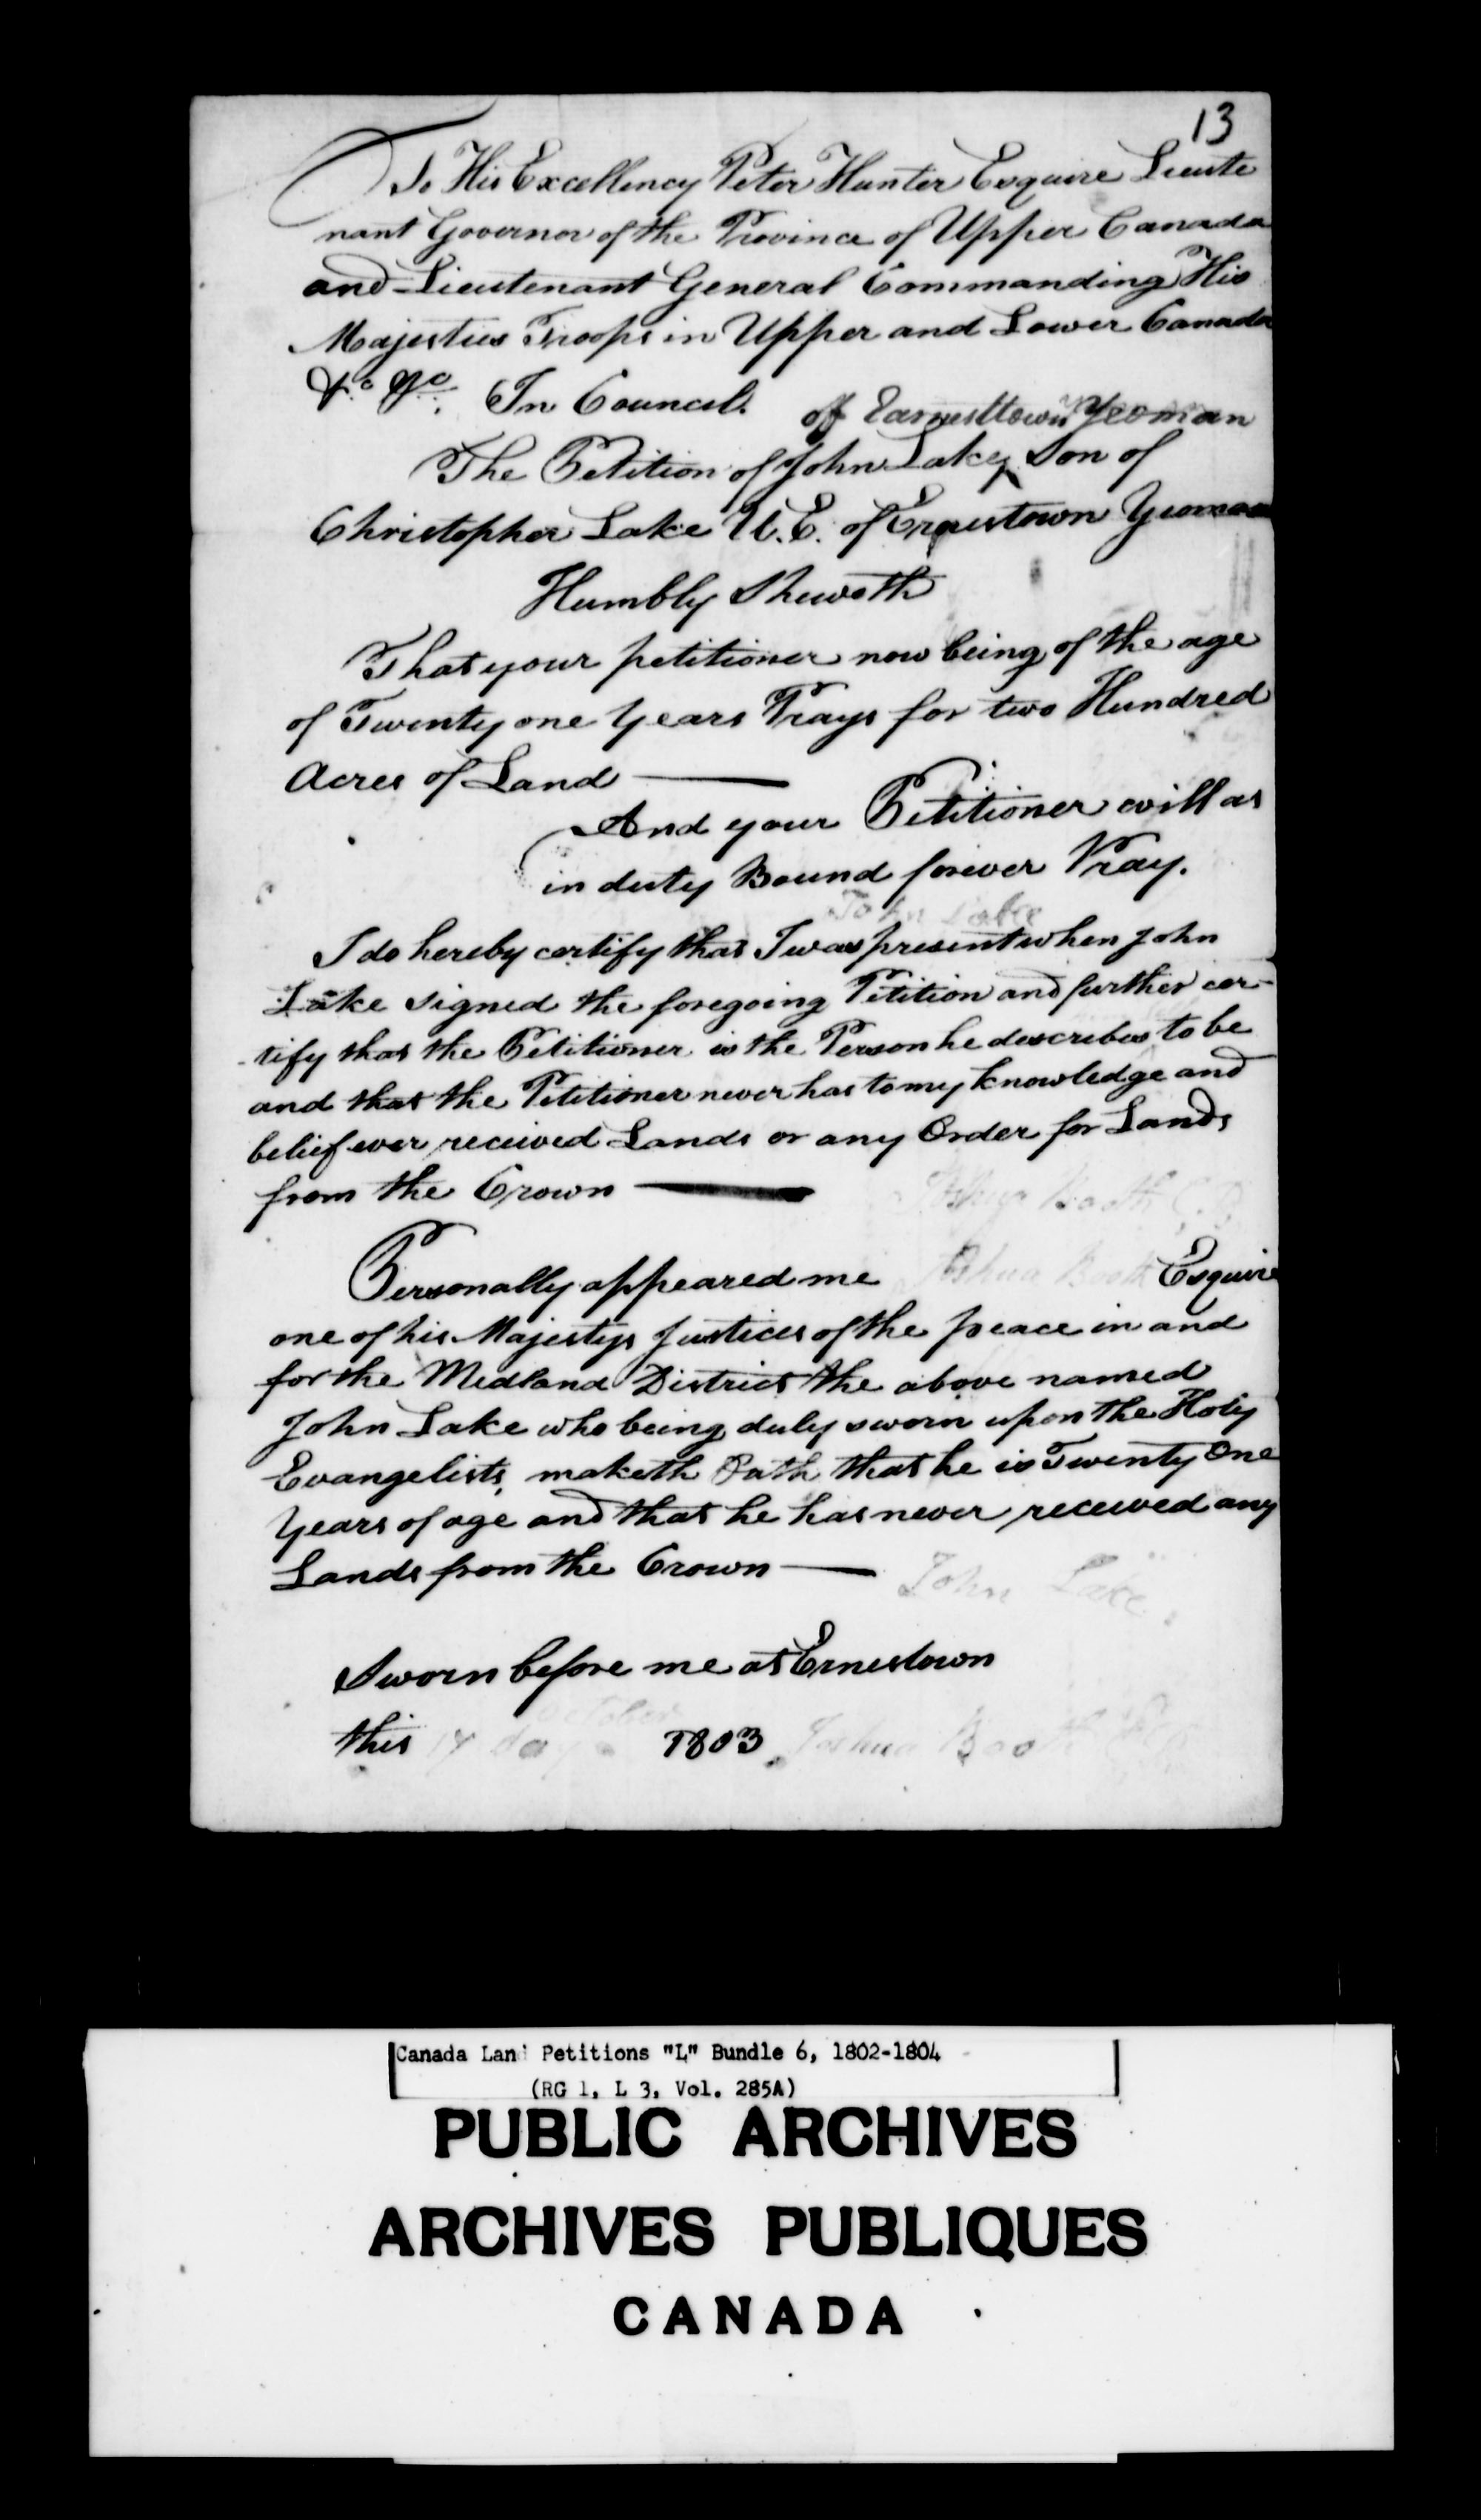 13
To His Excellency Peter Hunter Esquire Lieute
nant Governor of the Province of Upper Canada
and Lieutenant General Commanding His
Majesties Troops in Upper and Lower Canada
&c &c. In Council.
of Earnesttown Yeoman
The Petition of John Lake, Son of
Christopher Lake U.E. of Ernestown Yeoman
Humbly Sheweth
That your petitioner now being of the age
of Twenty one Years Prays for two Hundred
Acres of Land
And your Petitioner will as
in duty Bound forever Pray.
John Lake
I do hereby certify that I was present when John
Lake signed the foregoing Petition and further cer-
-tify that the Petitioner is the Person he describes to be
and that the Petitioner never has to my knowledge and
belief ever received Lands or any Order for Lands
from the Crown
Joshua Booth
Personally appeared me Joshua Booth Esquire
one of his Majestys Justices of the peace in and
for the Midland District the above named
John Lake who being duly sworn upon the Holy
Evangelists, maketh Oath that he is Twenty One
Years of age and that he has never received any
Lands from the Crown
John Lake
Sworn before me at Ernestown
October
this day 1803 Joshua Booth
Canada Lan Petitions "L" Bundle 6, 1802-1804
(RG 1, L 3, Vol. 285A)
PUBLIC ARCHIVES
ARCHIVES PUBLIQUES
CANADA